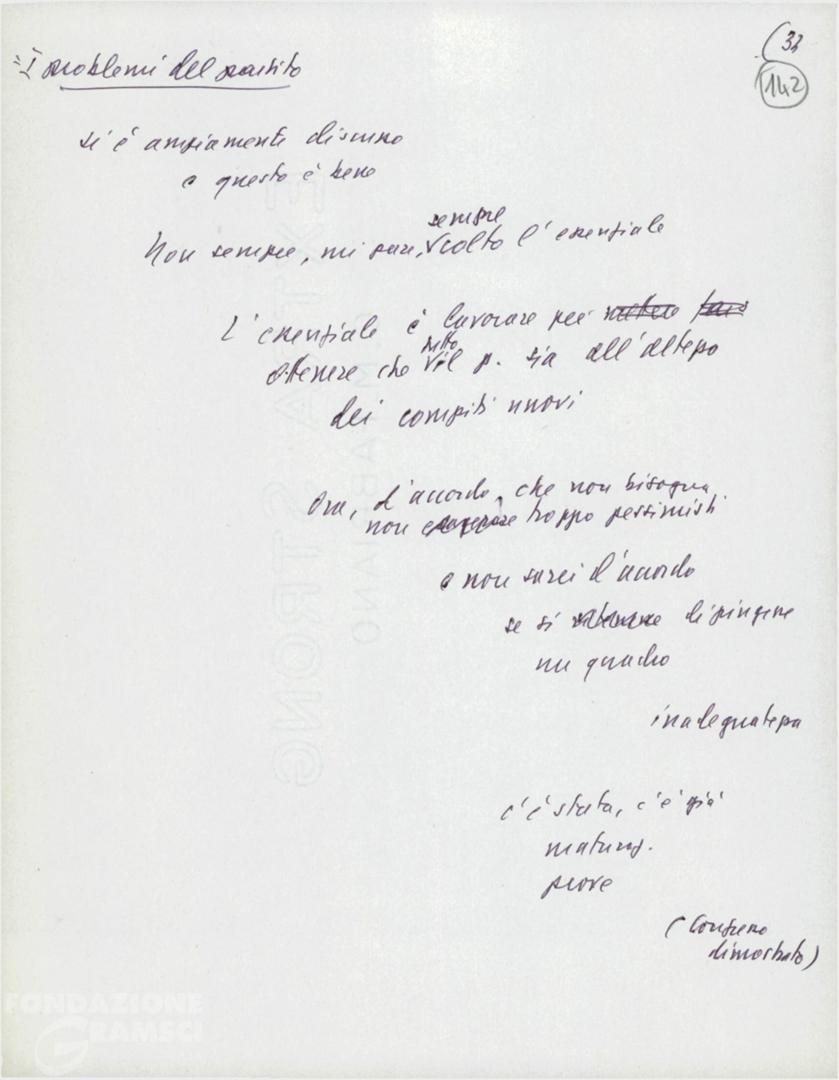 (32
142
"I problemi del partito
si è ampiamente discusso
e questo è bene
Non sempre, mi pare, sempre colto l'essenziale
L'essenziale è lavorare per
ottenere che tutto il p. sia all'altezza
dei compiti nuovi
Ora, d'accordo, che non bisogna
non troppo pessimisti
e non sarei d'accordo
se si dipingere
un quadro
inadeguatezza
c'è stata, c'è già
maturaz.
prove
(Congresso
dimostrato)
EXTRA STRONG
FABRIANO
FONDAZIONE
GRAMSCI